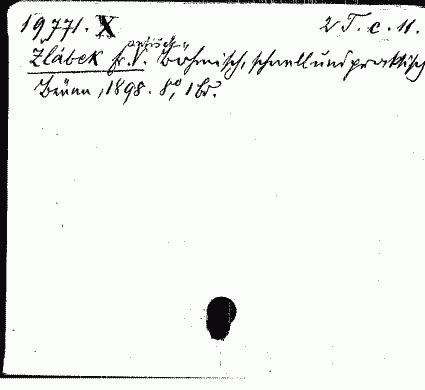 19771. X 2 T. c. 11.
Zlábek Fr. V. Böhmisch, schnell und praktisch
Brünn, 1898. 8°, 1 Bd.